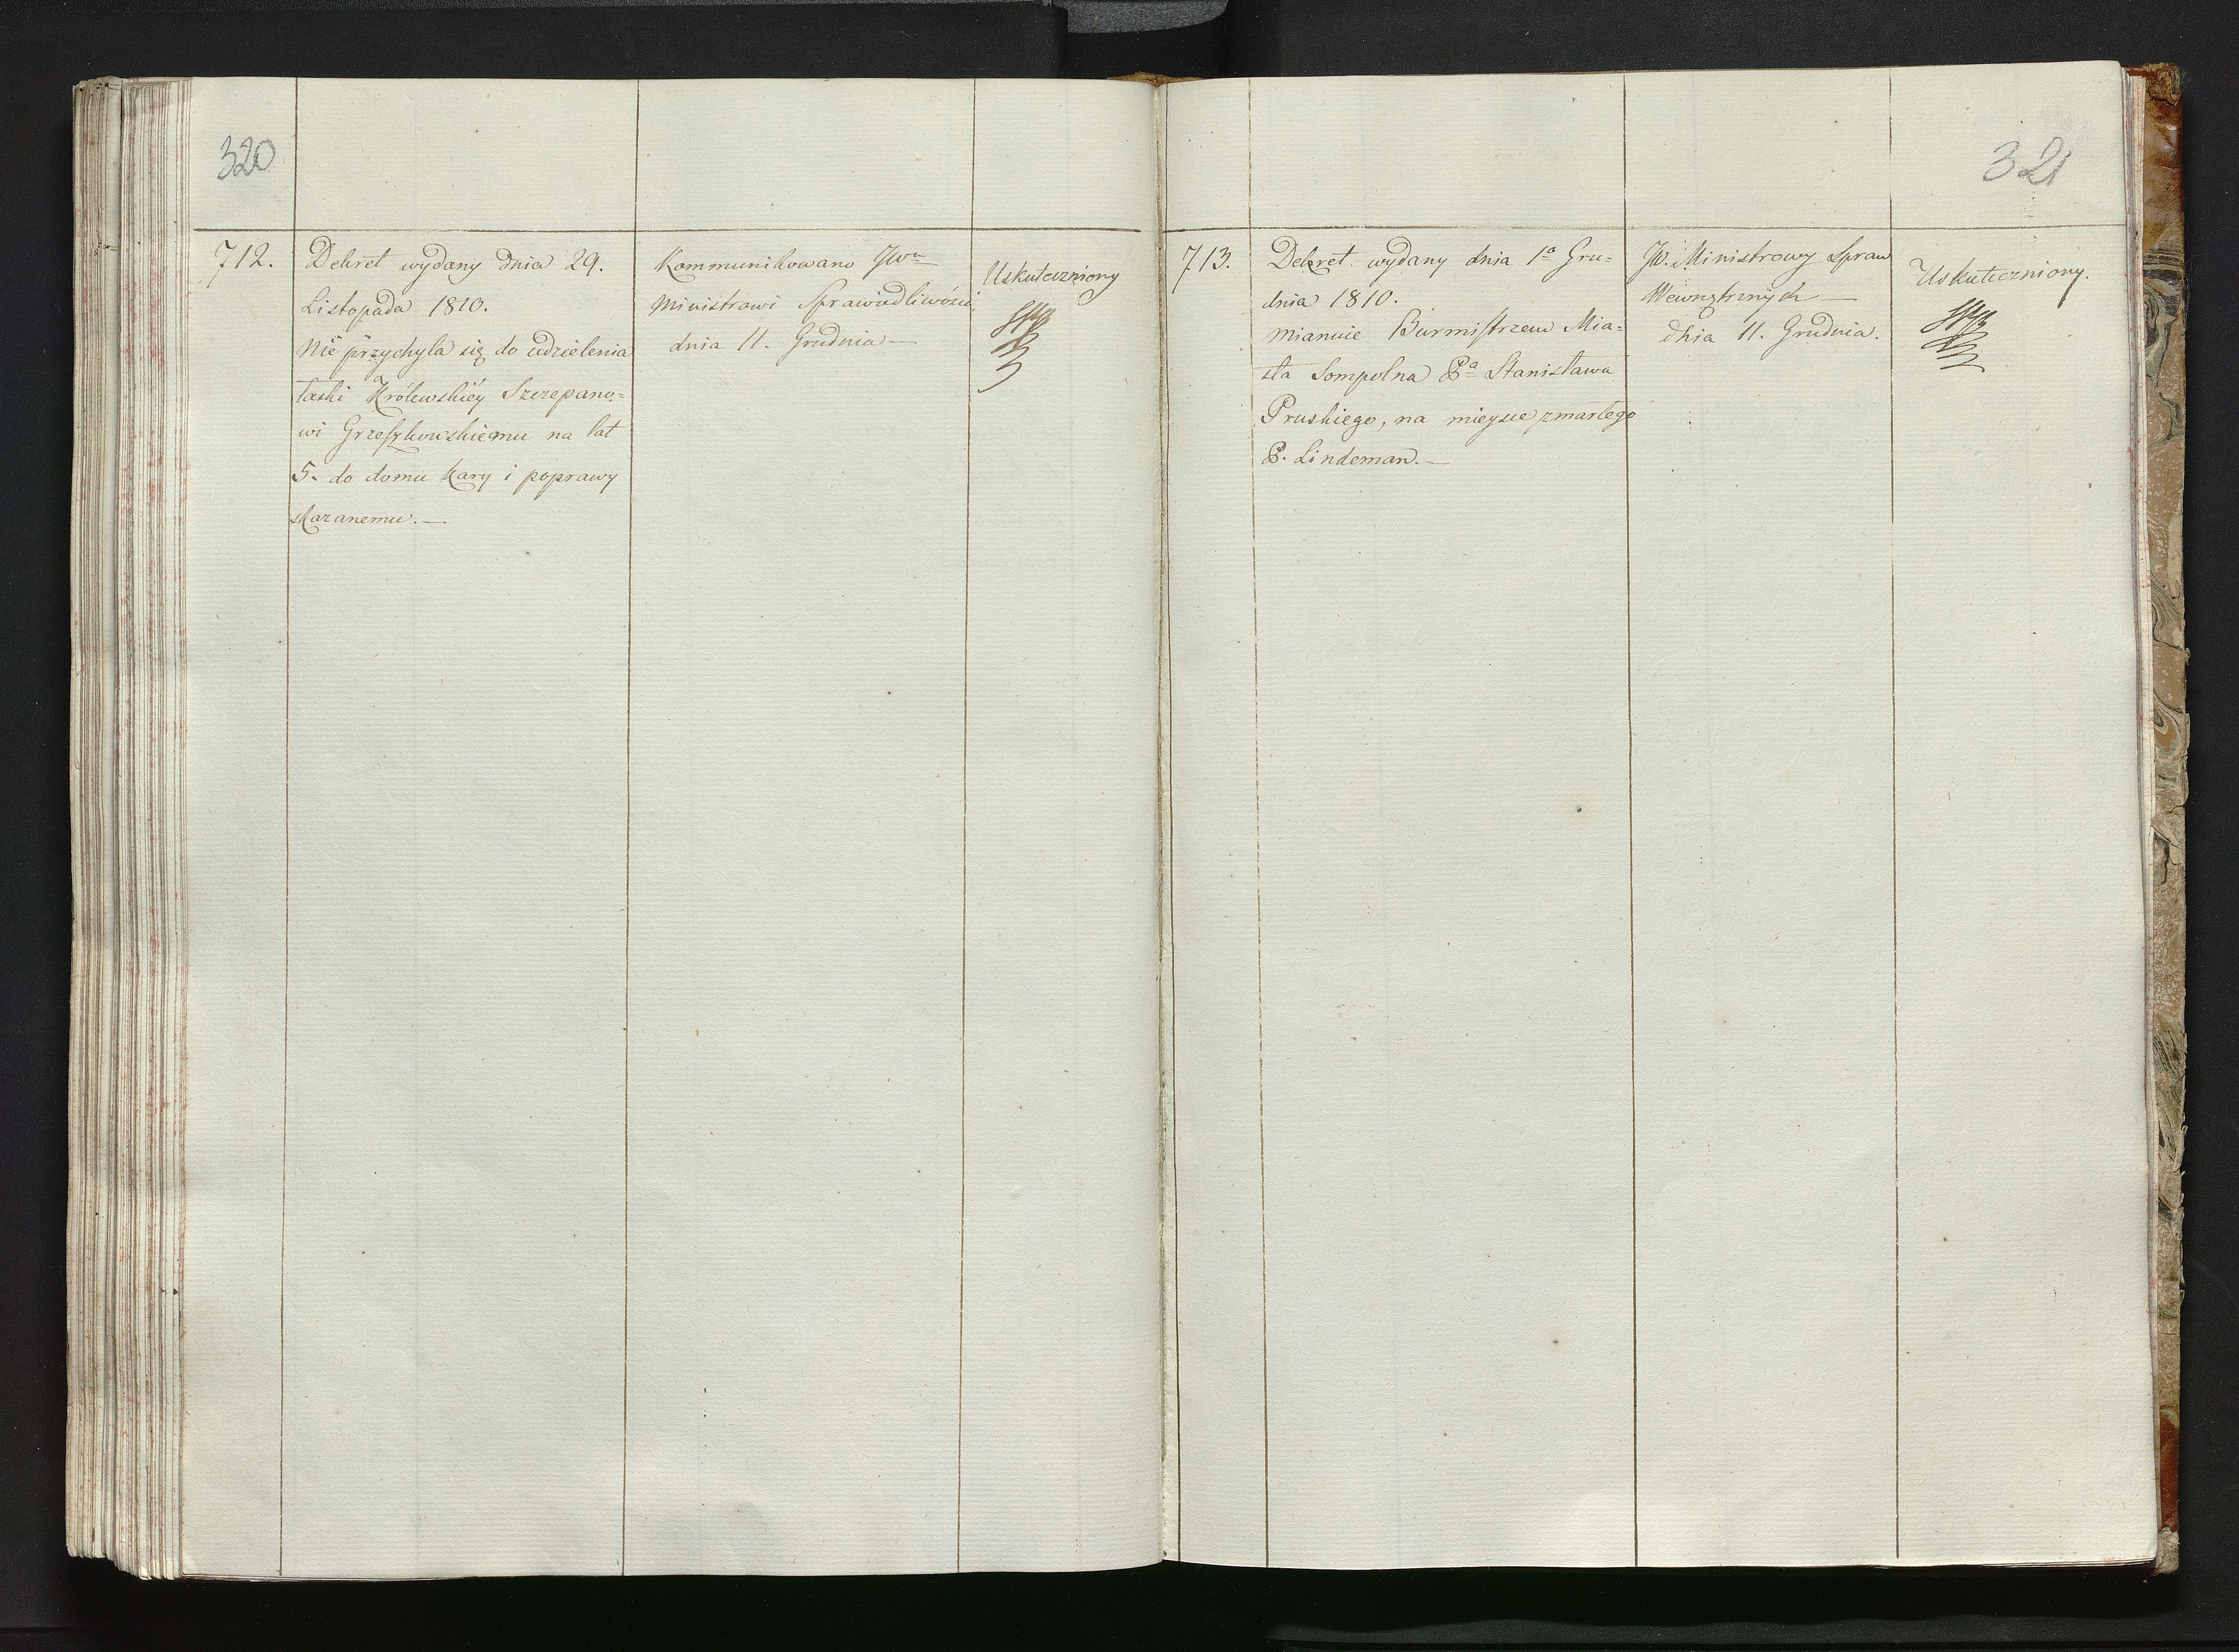 320
712.
Dekret wydany dnia 29.
Listopada 1810.
Nie przychyla się do udzielenia
łaski Królewskiéy Szczepano=
wi Grzeszkowskiemu na lat
5. do domu kary i poprawy
skazanemu. —
Kommunikowano JW
Ministrowi Sprawiedliwości
dnia 11. Grudnia —
Uskuteczniony
321
713.
Dekret wydany dnia 1ª Gru=
dnia 1810.
mianuie Burmistrzem Mia=
sta Sompolna Pª Stanisława
Pruskiego, na mieysce zmarłego
P. Lindeman. —
JW. Ministrowy Spraw
Wewnętrznych —
dnia 11. Grudnia.
Uskuteczniony.